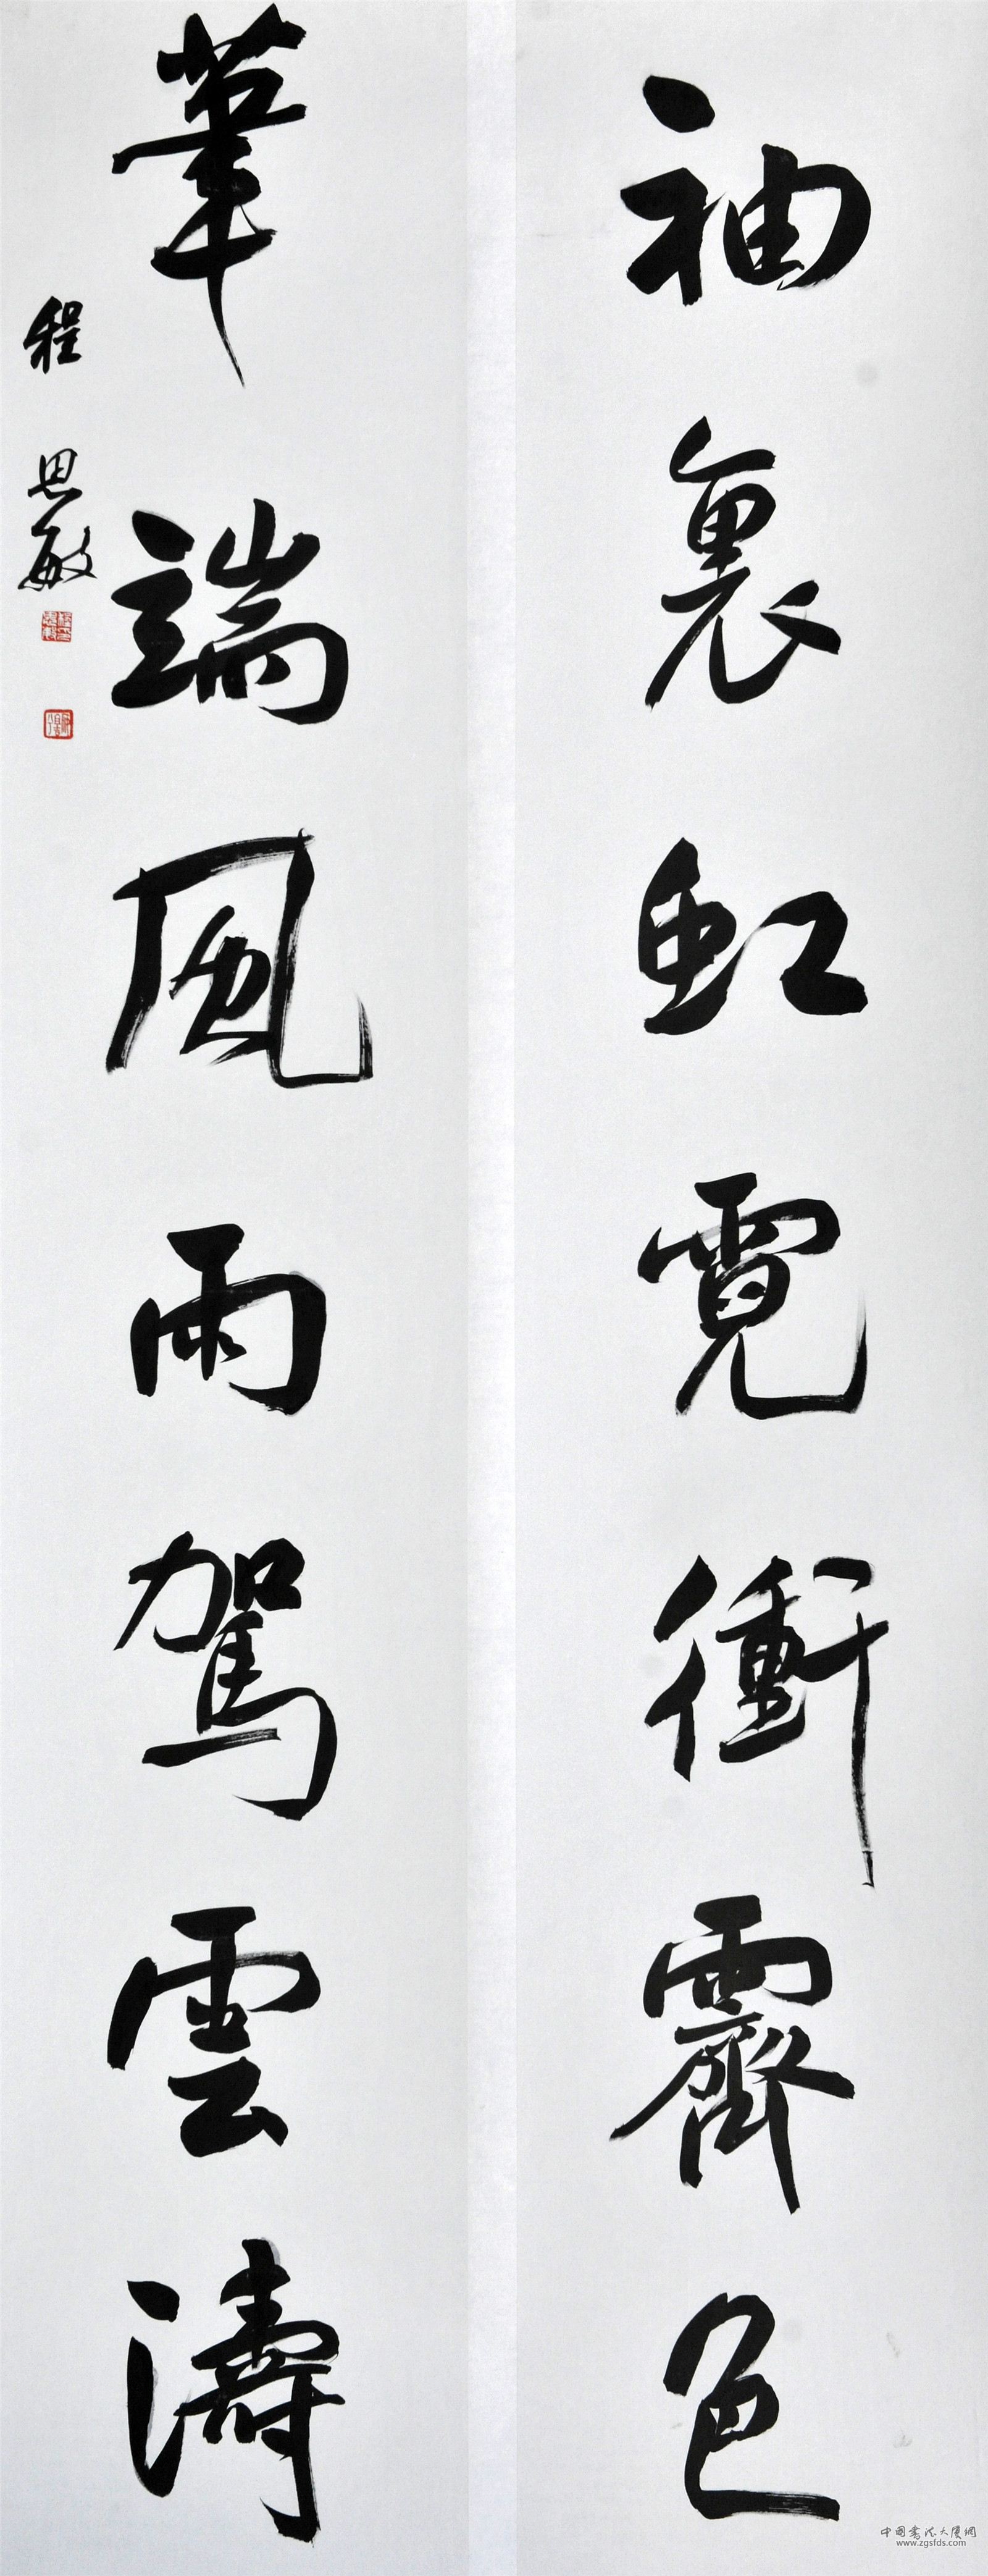 袖裏虹霓衝霽色
筆端風雨駕雲濤
程思敏
中国书法大厦网
www.zgsfds.com